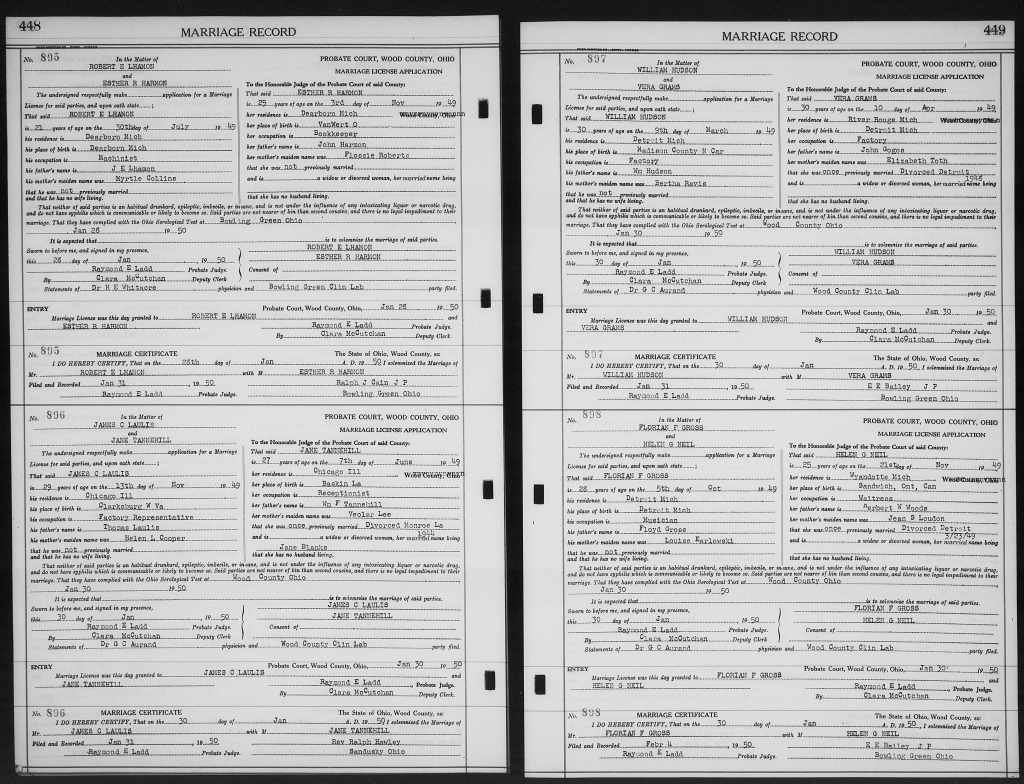 448
MARRIAGE RECORD
No. 895
In the Matter of
ROBERT E LHAMON
and
ESTHER R HARMON
The undersigned respectfully make application for a Marriage
License for said parties, and upon oath state ;
That said ROBERT E LHAMON
is 21 years of age on the 30th day of July 19 49
his residence is Dearborn Mich
his place of birth is Dearborn Mich
his occupation is Machinist
his father's name is J E Lhamon
his mother's maiden name was Myrtle Collins
that he was not previously married
and that he has no wife living.
PROBATE COURT, WOOD COUNTY, OHIO
MARRIAGE LICENSE APPLICATION
To the Honorable Judge of the Probate Court of said County:
That said ESTHER R HARMON
is 25 years of age on the 3rd day of Nov 19 49
her residence is Dearborn Mich Wood County, Ohio
her place of birth is VanWert O
her occupation is Bookkeeper
her father's name is John Harmon
her mother's maiden name was Flossie Roberts
that she was not previously married
and is a widow or divorced woman, her married name being
that she has no husband living.
That neither of said parties is an habitual drunkard, epileptic, imbecile, or insane, and is not under the influence of any intoxicating liquor or narcotic drug,
and do not have syphilis which is communicable or likely to become so. Said parties are not nearer of kin than second cousins, and there is no legal impediment to their
marriage. That they have complied with the Ohio Serological Test at Bowling Green Ohio
Jan 28 19 50
It is expected that is to solemnize the marriage of said parties.
Sworn to before me, and signed in my presence, ROBERT E LHAMON
this 28 day of Jan , 19 50 ESTHER R HARMON
Raymond E Ladd Probate Judge. Consent of
By Clara McCutchan Deputy Clerk
Statements of Dr R E Whitacre physician and Bowling Green Clin Lab party filed.
ENTRY Probate Court, Wood County, Ohio, Jan 28 19 50
Marriage License was this day granted to ROBERT E LHAMON and
ESTHER R HARMON Raymond E Ladd Probate Judge.
By Clara McCutchan Deputy Clerk.
No. 895 MARRIAGE CERTIFICATE The State of Ohio, Wood County, ss:
I DO HEREBY CERTIFY, That on the 28th day of Jan A. D. 19 50 I solemnized the Marriage of
Mr. ROBERT E LHAMON with M ESTHER R HARMON
Filed and Recorded Jan 31 , 19 50 Ralph J Cain J P
Raymond E Ladd Probate Judge. Bowling Green Ohio
No. 896
In the Matter of
JAMES C LAULIS
and
JANE TANNEHILL
The undersigned respectfully make application for a Marriage
License for said parties, and upon oath state ;
That said JAMES C LAULIS
is 29 years of age on the 13th day of Nov 19 49
his residence is Chicago Ill
his place of birth is Clarksburg W Va
his occupation is Factory Representative
his father's name is Thomas Laulis
his mother's maiden name was Helen L Cooper
that he was not previously married
and that he has no wife living.
PROBATE COURT, WOOD COUNTY, OHIO
MARRIAGE LICENSE APPLICATION
To the Honorable Judge of the Probate Court of said County:
That said JANE TANNEHILL
is 27 years of age on the 7th day of June 19 49
her residence is Chicago Ill Wood County, Ohio
her place of birth is Baskin La
her occupation is Receptionist
her father's name is Wm F Tannehill
her mother's maiden name was Veolar Lee
that she was once previously married Divorced Monroe La
1944
and is a widow or divorced woman, her married name being
Jane Blanks
that she has no husband living.
That neither of said parties is an habitual drunkard, epileptic, imbecile, or insane, and is not under the influence of any intoxicating liquor or narcotic drug,
and do not have syphilis which is communicable or likely to become so. Said parties are not nearer of kin than second cousins, and there is no legal impediment to their
marriage. That they have complied with the Ohio Serological Test at Wood County Ohio
Jan 30 19 50
It is expected that is to solemnize the marriage of said parties.
Sworn to before me, and signed in my presence, JAMES C LAULIS
this 30 day of Jan , 19 50 JANE TANNEHILL
Raymond E Ladd Probate Judge. Consent of
By Clara McCutchan Deputy Clerk
Statements of Dr G C Aurand physician and Wood County Clin Lab party filed.
ENTRY Probate Court, Wood County, Ohio, Jan 30 19 50
Marriage License was this day granted to JAMES C LAULIS and
JANE TANNEHILL Raymond E Ladd , Probate Judge.
By Clara McCutchan Deputy Clerk.
No. 896 MARRIAGE CERTIFICATE The State of Ohio, Wood County, ss:
I DO HEREBY CERTIFY, That on the 30 day of Jan A. D. 19 50 I solemnized the Marriage of
Mr. JAMES C LAULIS with M JANE TANNEHILL
Filed and Recorded Jan 31 , 19 50 Rev Ralph Hawley
Raymond E Ladd Probate Judge. Sandusky Ohio
449
MARRIAGE RECORD
No. 897
In the Matter of
WILLIAM HUDSON
and
VERA GRAMS
The undersigned respectfully make application for a Marriage
License for said parties, and upon oath state ;
That said WILLIAM HUDSON
is 30 years of age on the 9th day of March 19 49
his residence is Detroit Mich
his place of birth is Madison County N Car
his occupation is Factory
his father's name is Wm Hudson
his mother's maiden name was Bertha Ravis
that he was not previously married
and that he has no wife living.
PROBATE COURT, WOOD COUNTY, OHIO
MARRIAGE LICENSE APPLICATION
To the Honorable Judge of the Probate Court of said County:
That said VERA GRAMS
is 30 years of age on the 10 day of Apr 19 49
her residence is River Rouge Mich Wood County, Ohio
her place of birth is Detroit Mich
her occupation is Factory
her father's name is John Gogos
her mother's maiden name was Elizabeth Toth
that she was once previously married Divorced Detroit
1946
and is a widow or divorced woman, her married name being
that she has no husband living.
That neither of said parties is an habitual drunkard, epileptic, imbecile, or insane, and is not under the influence of any intoxicating liquor or narcotic drug,
and do not have syphilis which is communicable or likely to become so. Said parties are not nearer of kin than second cousins, and there is no legal impediment to their
marriage. That they have complied with the Ohio Serological Test at Wood County Ohio
Jan 30 19 50
It is expected that is to solemnize the marriage of said parties.
Sworn to before me, and signed in my presence, WILLIAM HUDSON
this 30 day of Jan , 19 50 VERA GRAMS
Raymond E Ladd Probate Judge. Consent of
By Clara McCutchan Deputy Clerk
Statements of Dr G C Aurand physician and Wood County Clin Lab party filed.
ENTRY Probate Court, Wood County, Ohio, Jan 30 19 50
Marriage License was this day granted to WILLIAM HUDSON and
VERA GRAMS Raymond E Ladd Probate Judge.
By Clara McCutchan Deputy Clerk.
No. 897 MARRIAGE CERTIFICATE The State of Ohio, Wood County, ss:
I DO HEREBY CERTIFY, That on the 30 day of Jan A. D. 19 50, I solemnized the Marriage of
Mr. WILLIAM HUDSON with M VERA GRAMS
Filed and Recorded Jan 31 , 19 50 E E Bailey J P
Raymond E Ladd Probate Judge. Bowling Green Ohio
No. 898
In the Matter of
FLORIAN F GROSS
and
HELEN G NEIL
The undersigned respectfully make application for a Marriage
License for said parties, and upon oath state ;
That said FLORIAN F GROSS
is 28 years of age on the 5th day of Oct 19 49
his residence is Detroit Mich
his place of birth is Detroit Mich
his occupation is Musician
his father's name is Floyd Gross
his mother's maiden name was Louise Karlowski
that he was not previously married
and that he has no wife living.
PROBATE COURT, WOOD COUNTY, OHIO
MARRIAGE LICENSE APPLICATION
To the Honorable Judge of the Probate Court of said County:
That said HELEN G NEIL
is 25 years of age on the 21st day of Nov 19 49
her residence is Wyandotte Mich Wood County, Ohio
her place of birth is Sandwich, Ont, Can
her occupation is Waitress
her father's name is Herbert W Woods
her mother's maiden name was Jean S Loudon
that she was once previously married Divorced Detroit
3/23/49
and is a widow or divorced woman, her married name being
that she has no husband living.
That neither of said parties is an habitual drunkard, epileptic, imbecile, or insane, and is not under the influence of any intoxicating liquor or narcotic drug,
and do not have syphilis which is communicable or likely to become so. Said parties are not nearer of kin than second cousins, and there is no legal impediment to their
marriage. That they have complied with the Ohio Serological Test at Wood County Ohio
Jan 30 19 50
It is expected that is to solemnize the marriage of said parties.
Sworn to before me, and signed in my presence, FLORIAN F GROSS
this 30 day of Jan , 19 50 HELEN G NEIL
Raymond E Ladd Probate Judge. Consent of
By Clara McCutchan Deputy Clerk
Statements of Dr G C Aurand physician and Wood County Clin Lab party filed.
ENTRY Probate Court, Wood County, Ohio, Jan 30 19 50
Marriage License was this day granted to FLORIAN F GROSS and
HELEN G NEIL Raymond E Ladd , Probate Judge.
By Clara McCutchan Deputy Clerk.
No. 898 MARRIAGE CERTIFICATE The State of Ohio, Wood County, ss:
I DO HEREBY CERTIFY, That on the 30 day of Jan A. D. 19 50 , I solemnized the Marriage of
Mr. FLORIAN F GROSS with M HELEN G NEIL
Filed and Recorded Febr 4 , 19 50 E E Bailey J P
Raymond E Ladd Probate Judge. Bowling Green Ohio